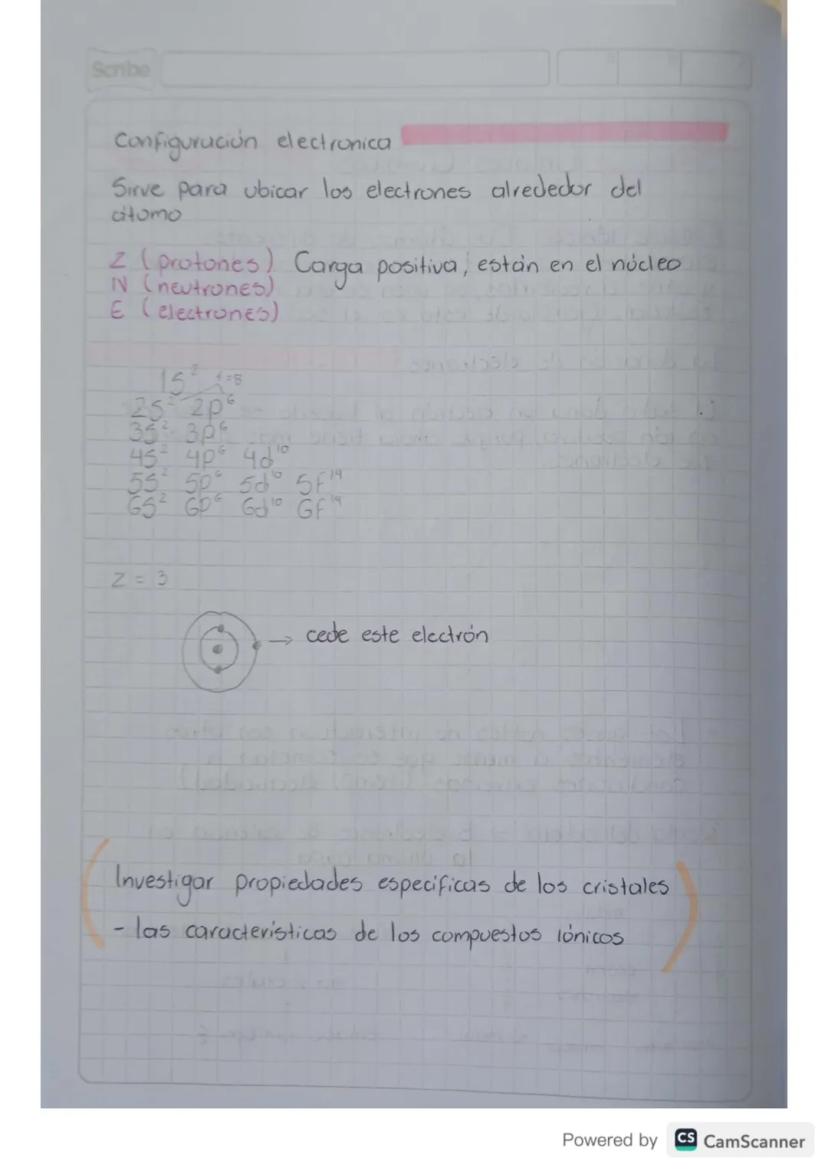 Scribe
Configuración electronica
Sirve para ubicar los electrones alrededor del
átomo
Z (protones) Carga positiva, están en el núcleo
N (neutrones)
E (electrones)
1S²
2S² 2p⁶
3S² 3p⁶
4S² 4p⁶ 4d¹⁰
5S² 5p⁶ 5d¹⁰ 5f¹⁴
6S² 6p⁶ 6d¹⁰ 6f¹⁴
Z = 3
→ cede este electrón
Investigar propiedades especificas de los cristales
- las caracteristicas de los compuestos iónicos
Powered by CS CamScanner